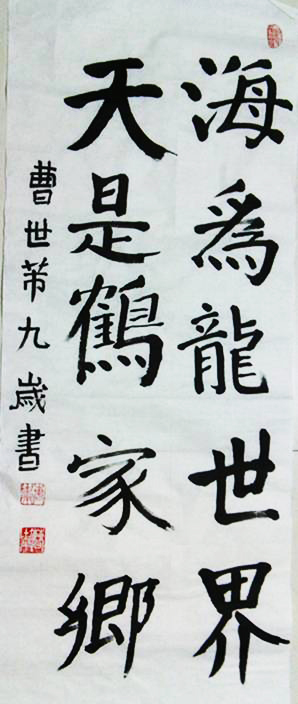 海爲龍世界
天是鶴家鄉
曹世芾九歲書